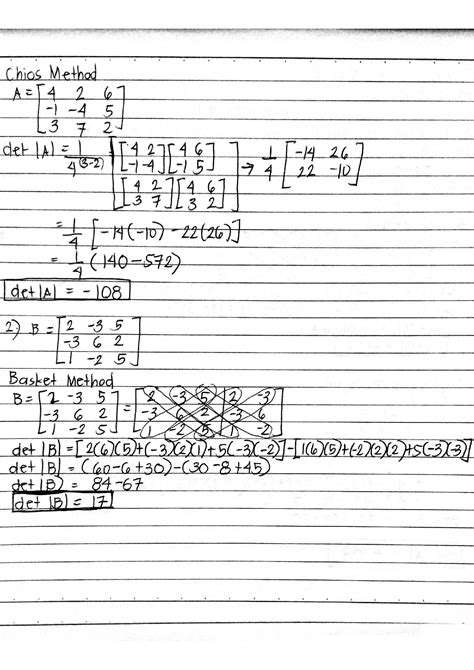 Chios Method
A = [4 2 6
-1 -4 5
3 7 2]
det |A| = 1/4^(3-2) [[4 2 -1 -4] [4 6 -1 5] [4 2 3 7] [4 6 3 2]] → 1/4 [-14 26 22 -10]
= 1/4 [-14(-10) - 22(26)]
= 1/4 (140 - 572)
det |A| = -108
2) B = [2 -3 5
-3 6 2
1 -2 5]
Basket Method
B = [2 -3 5 = [2 -3 5 2 -3
-3 6 2 -3 6 2 -3 6
1 -2 5] 1 -2 5 1 -2]
det |B| = [2(6)(5)+(-3)(2)(1)+5(-3)(-2)]-[1(6)(5)+(-2)(2)(2)+5(-3)(-3)]
det |B| = (60-6+30)-(30-8+45)
det |B| = 84-67
det |B| = 17